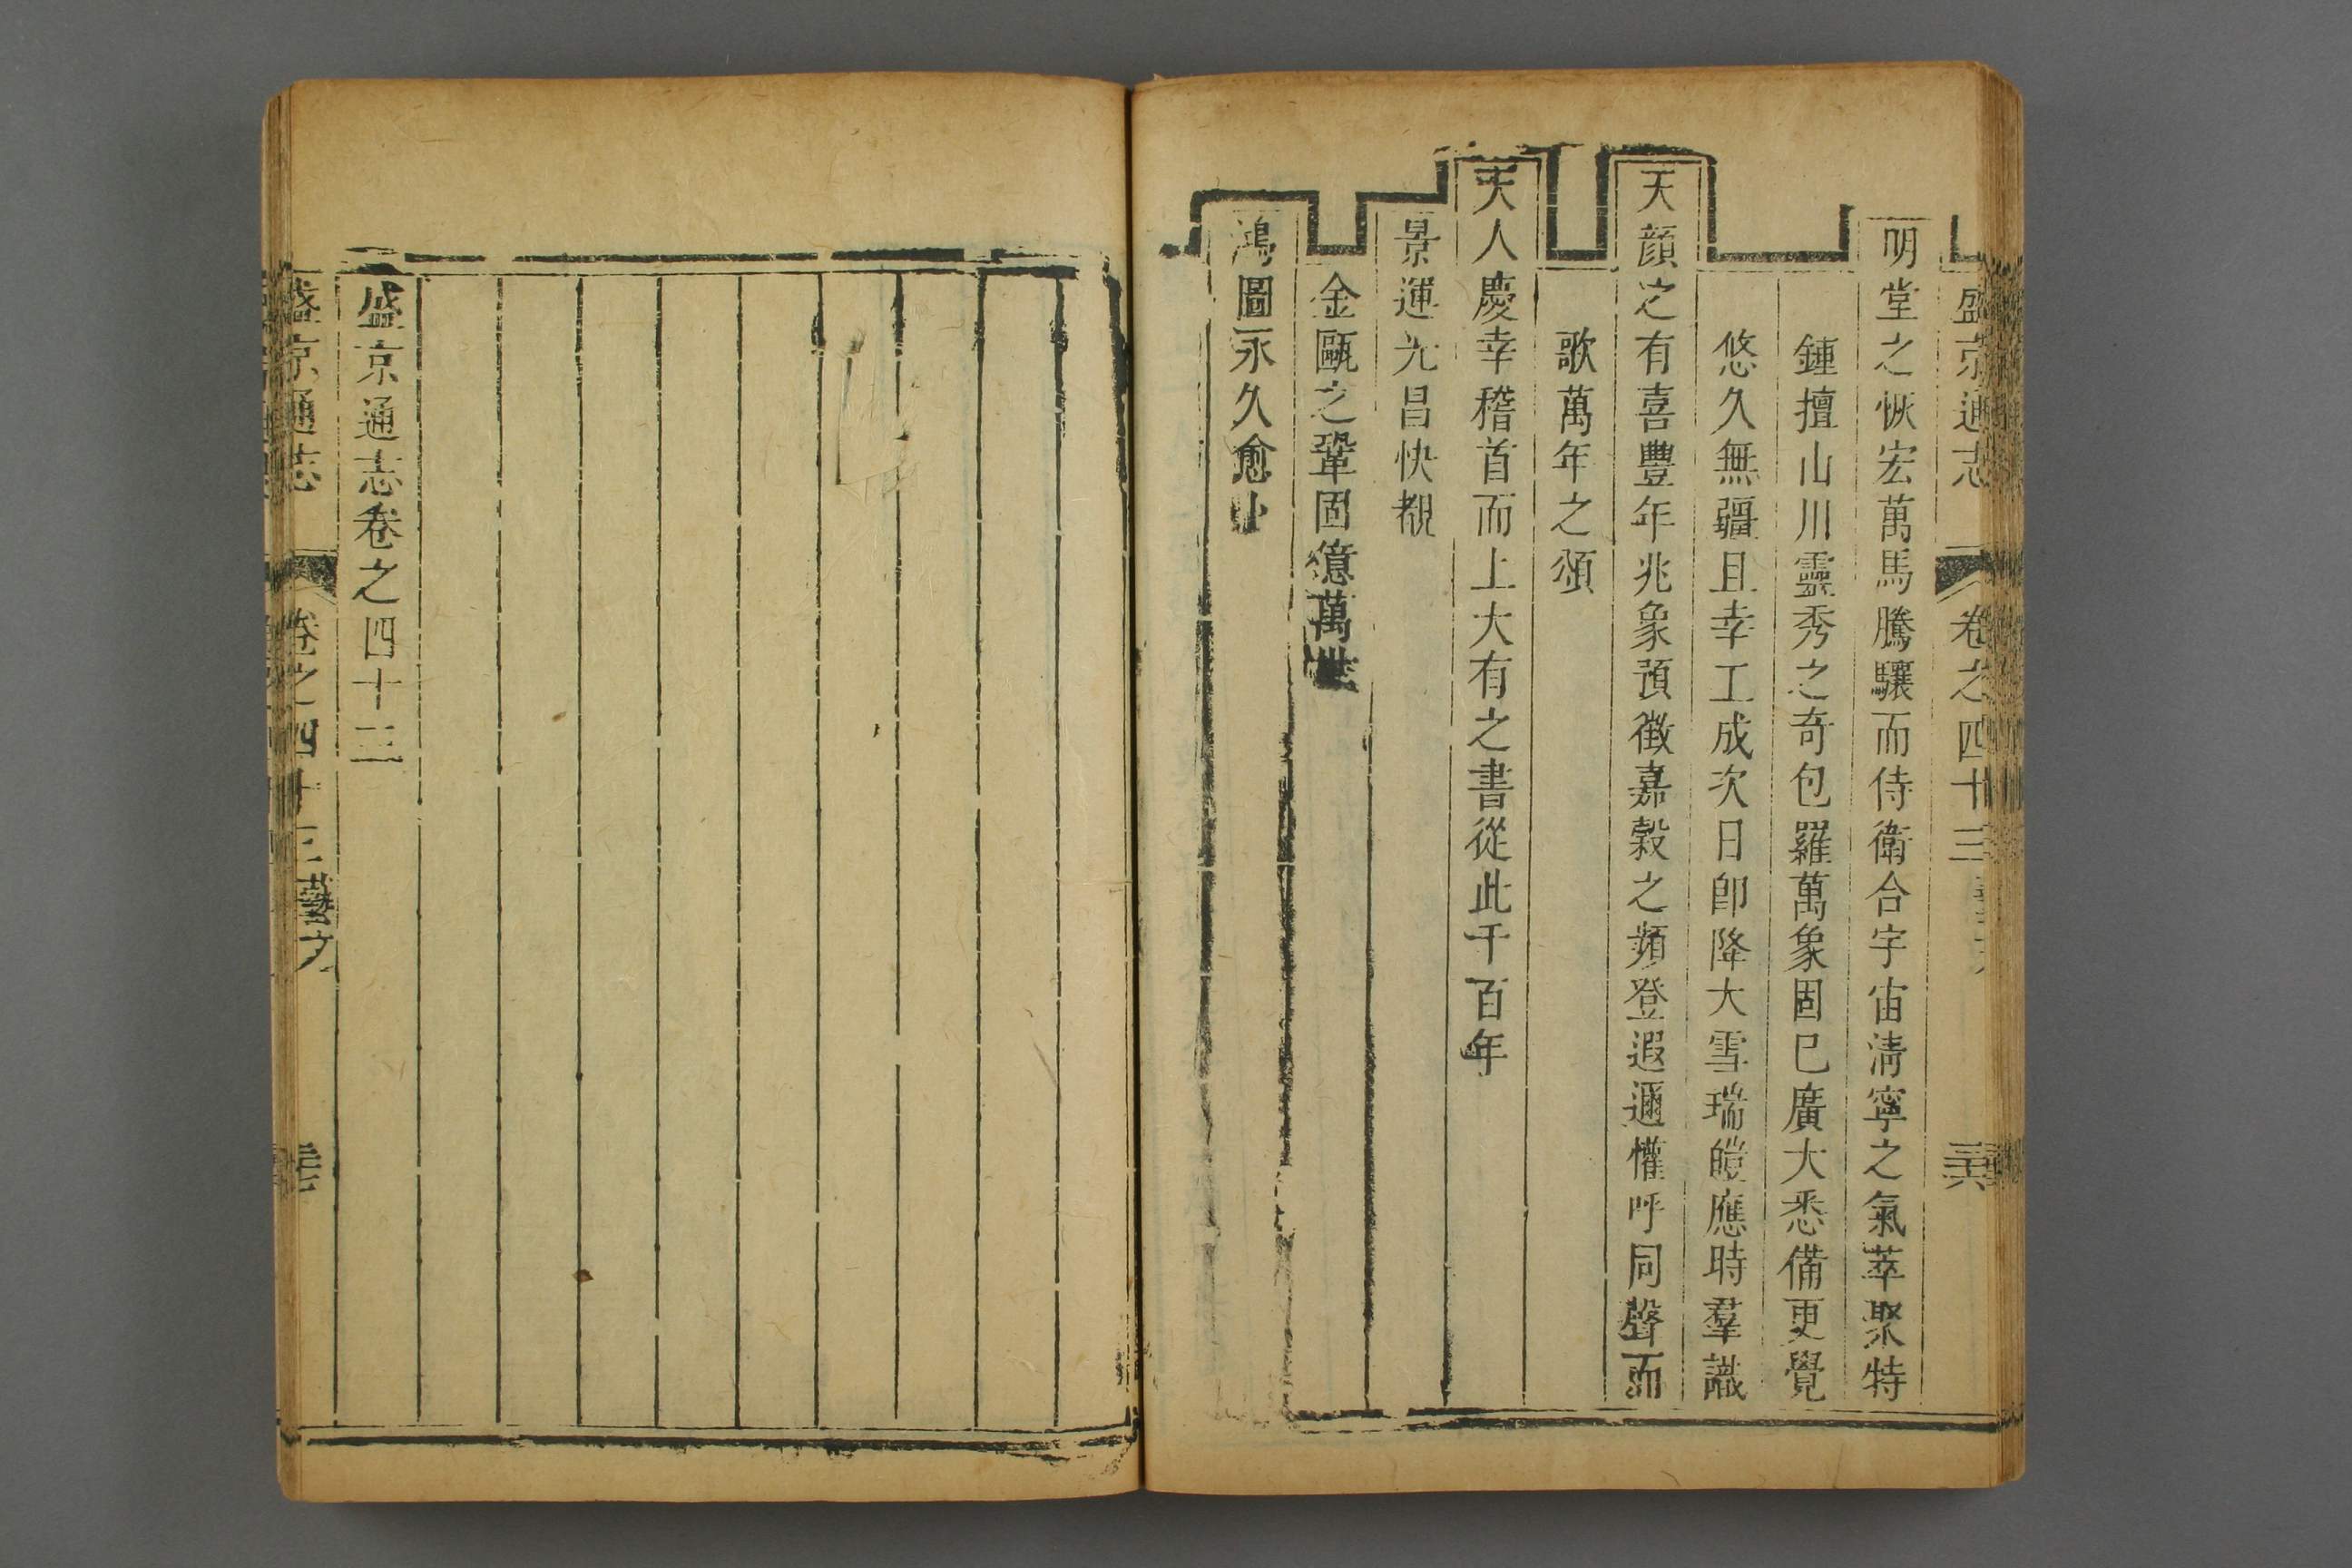 盛京通志 卷之四十三 三六
明堂之恢宏萬馬騰驤而侍衛合宇宙淸寧之氣萃聚特
鍾擅山川靈秀之奇包羅萬象固已廣大悉備更覺
悠久無疆且幸工成次日卽降大雪瑞皚應時羣識
天顔之有喜豐年兆象預徵嘉穀之頻登遐邇懽呼同聲而
歌萬年之頌
天人慶幸稽首而上大有之書從此千百年
景運光昌快覩
金甌之鞏固億萬世
鴻圖永久愈
盛京通志卷之四十三
盛京通志 卷之四十三 藝文